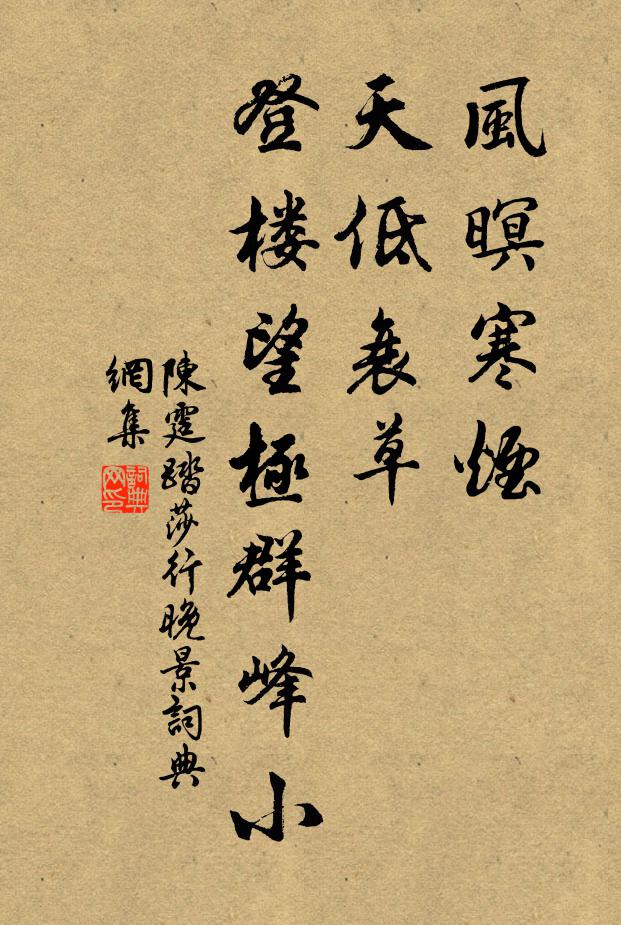 風暝寒煙
天低衰草
登楼望極群峰小
陳霆踏莎行晚景詞典
網集
詞典
网印